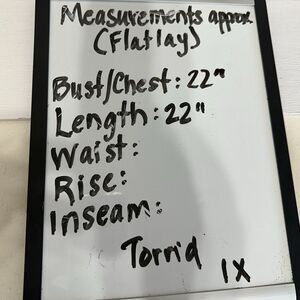 Measurements approx
(Flatlay)
Bust/Chest: 22"
Length: 22"
Waist:
Rise:
Inseam:
Torrid
1X